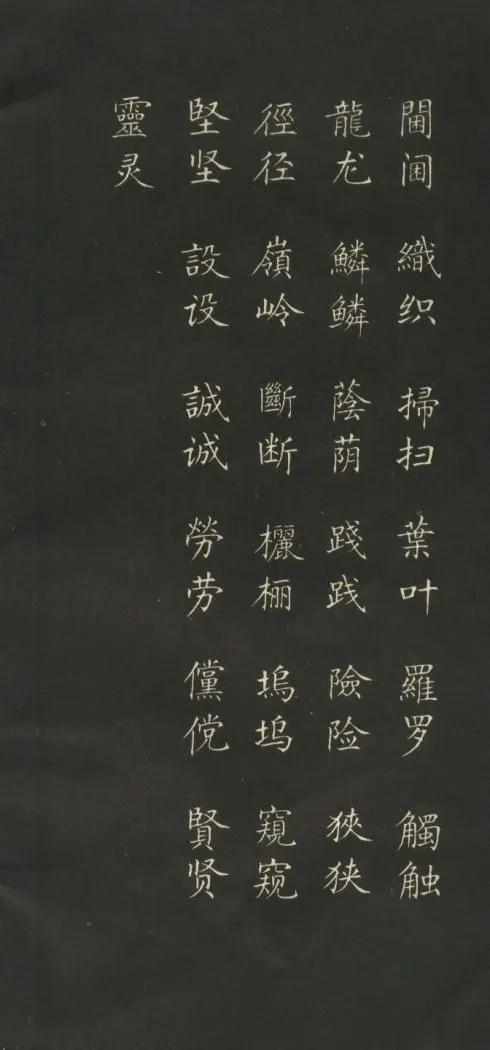 織织 掃扫 葉叶 羅罗 觸触
龍龙 鱗鳞 蔭荫 踐践 險险 狹狭
徑径 嶺岭 斷断 欐 塢坞 窺窥
堅坚 設设 誠诚 勞劳 儻傥 賢贤
靈灵